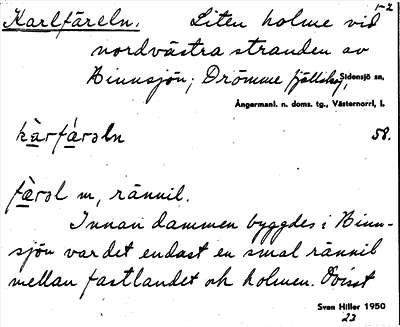 1-2
Karlfäreln. Liten holme vid
nordvästra stranden av
Binnsjön; Drömme fjällskog, Sidensjö sn,
Ångermanl. n. doms. tg., Västernorrl. l.
kàrfá̀rəln 58.
fà̀rəl m, rännil.
Innan dammen byggdes i Binn-
sjön var det endast en smal rännil
mellan fastlandet och holmen. Ovisst
Sven Hiller 1950
23